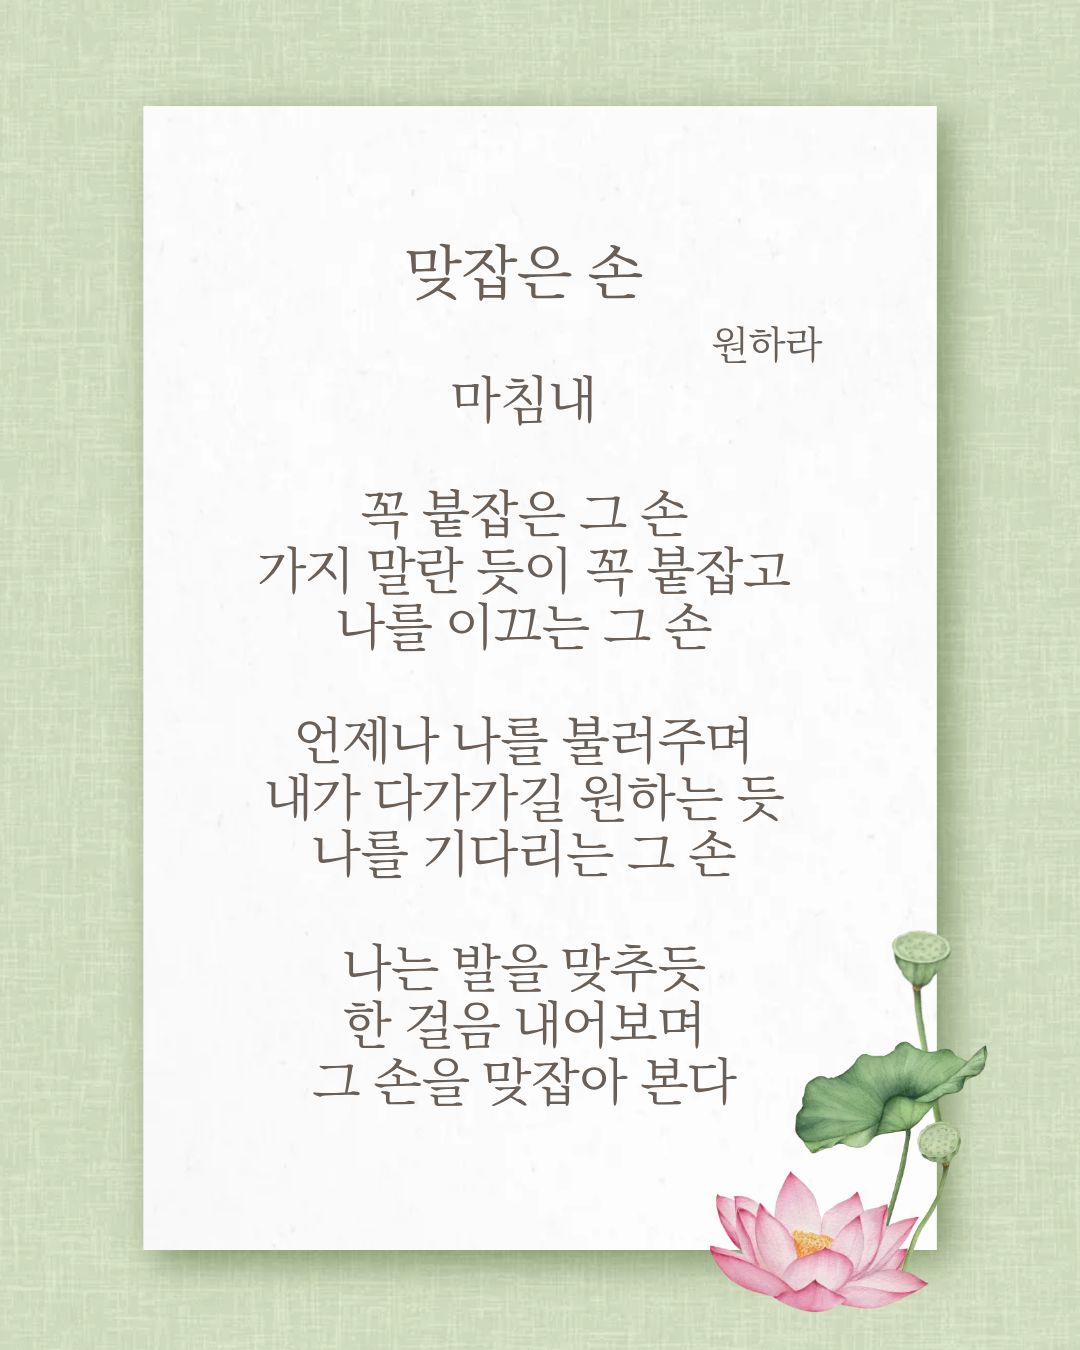 맞잡은 손
원하라
마침내
꼭 붙잡은 그 손
가지 말란 듯이 꼭 붙잡고
나를 이끄는 그 손
언제나 나를 불러주며
내가 다가가길 원하는 듯
나를 기다리는 그 손
나는 발을 맞추듯
한 걸음 내어보며
그 손을 맞잡아 본다